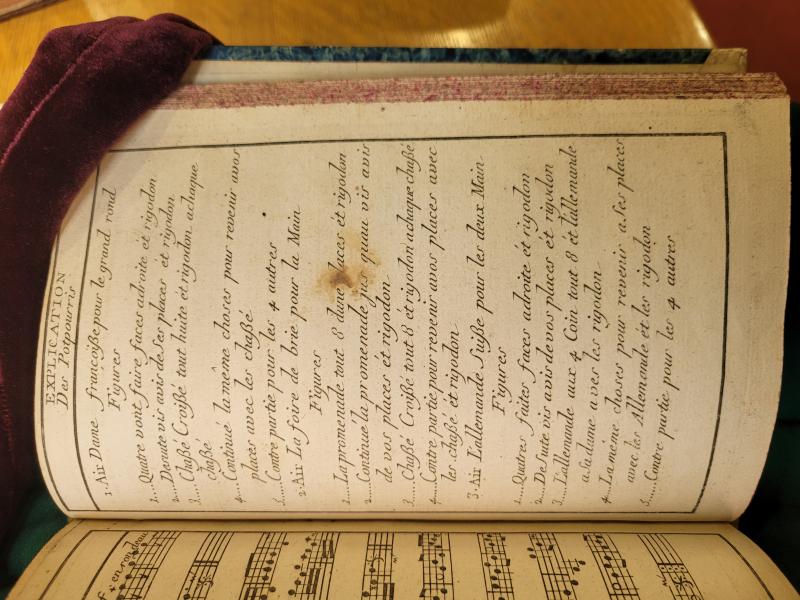 EXPLICATION
Des Potpourris
1. Air Dame françoiße pour le grand rond
Figures
1.... Quatre vont faire faces adroite et rigodon
2.... Desuite vis avis de ses places et rigodon
3.... Chaßé Croißé tout huite et rigodon achaque
chaßé
4.... Continué la même choses pour revenir avos
places avec les chaßé
5.... Contre partie pour les 4 autres
2. Air La foire de brie pour la Main
Figures
1.... La promenade tout 8 dune places et rigodon
2.... Continué la promenade jus quau vis avis
de vos places et rigodon
3.... Chaßé Croißé tout 8 et rigodon achaque chaßé
4.... Contre partie pour revenir avos places avec
les chaßé et rigodon
3. Air L'allemande Suiße pour les deux Main
Figures
1.... Quatres faites faces adroite et rigodon
2.... De suite vis avis de vos places et rigodon
3.... L'allemande aux 4 Coin tout 8 et l'allemande
a sa dame aves les rigodon
4.... La même choses pour revenir a ses places
avec les Allemande et les rigodon
5.... Contre partie pour les 4 autres
en rondeau